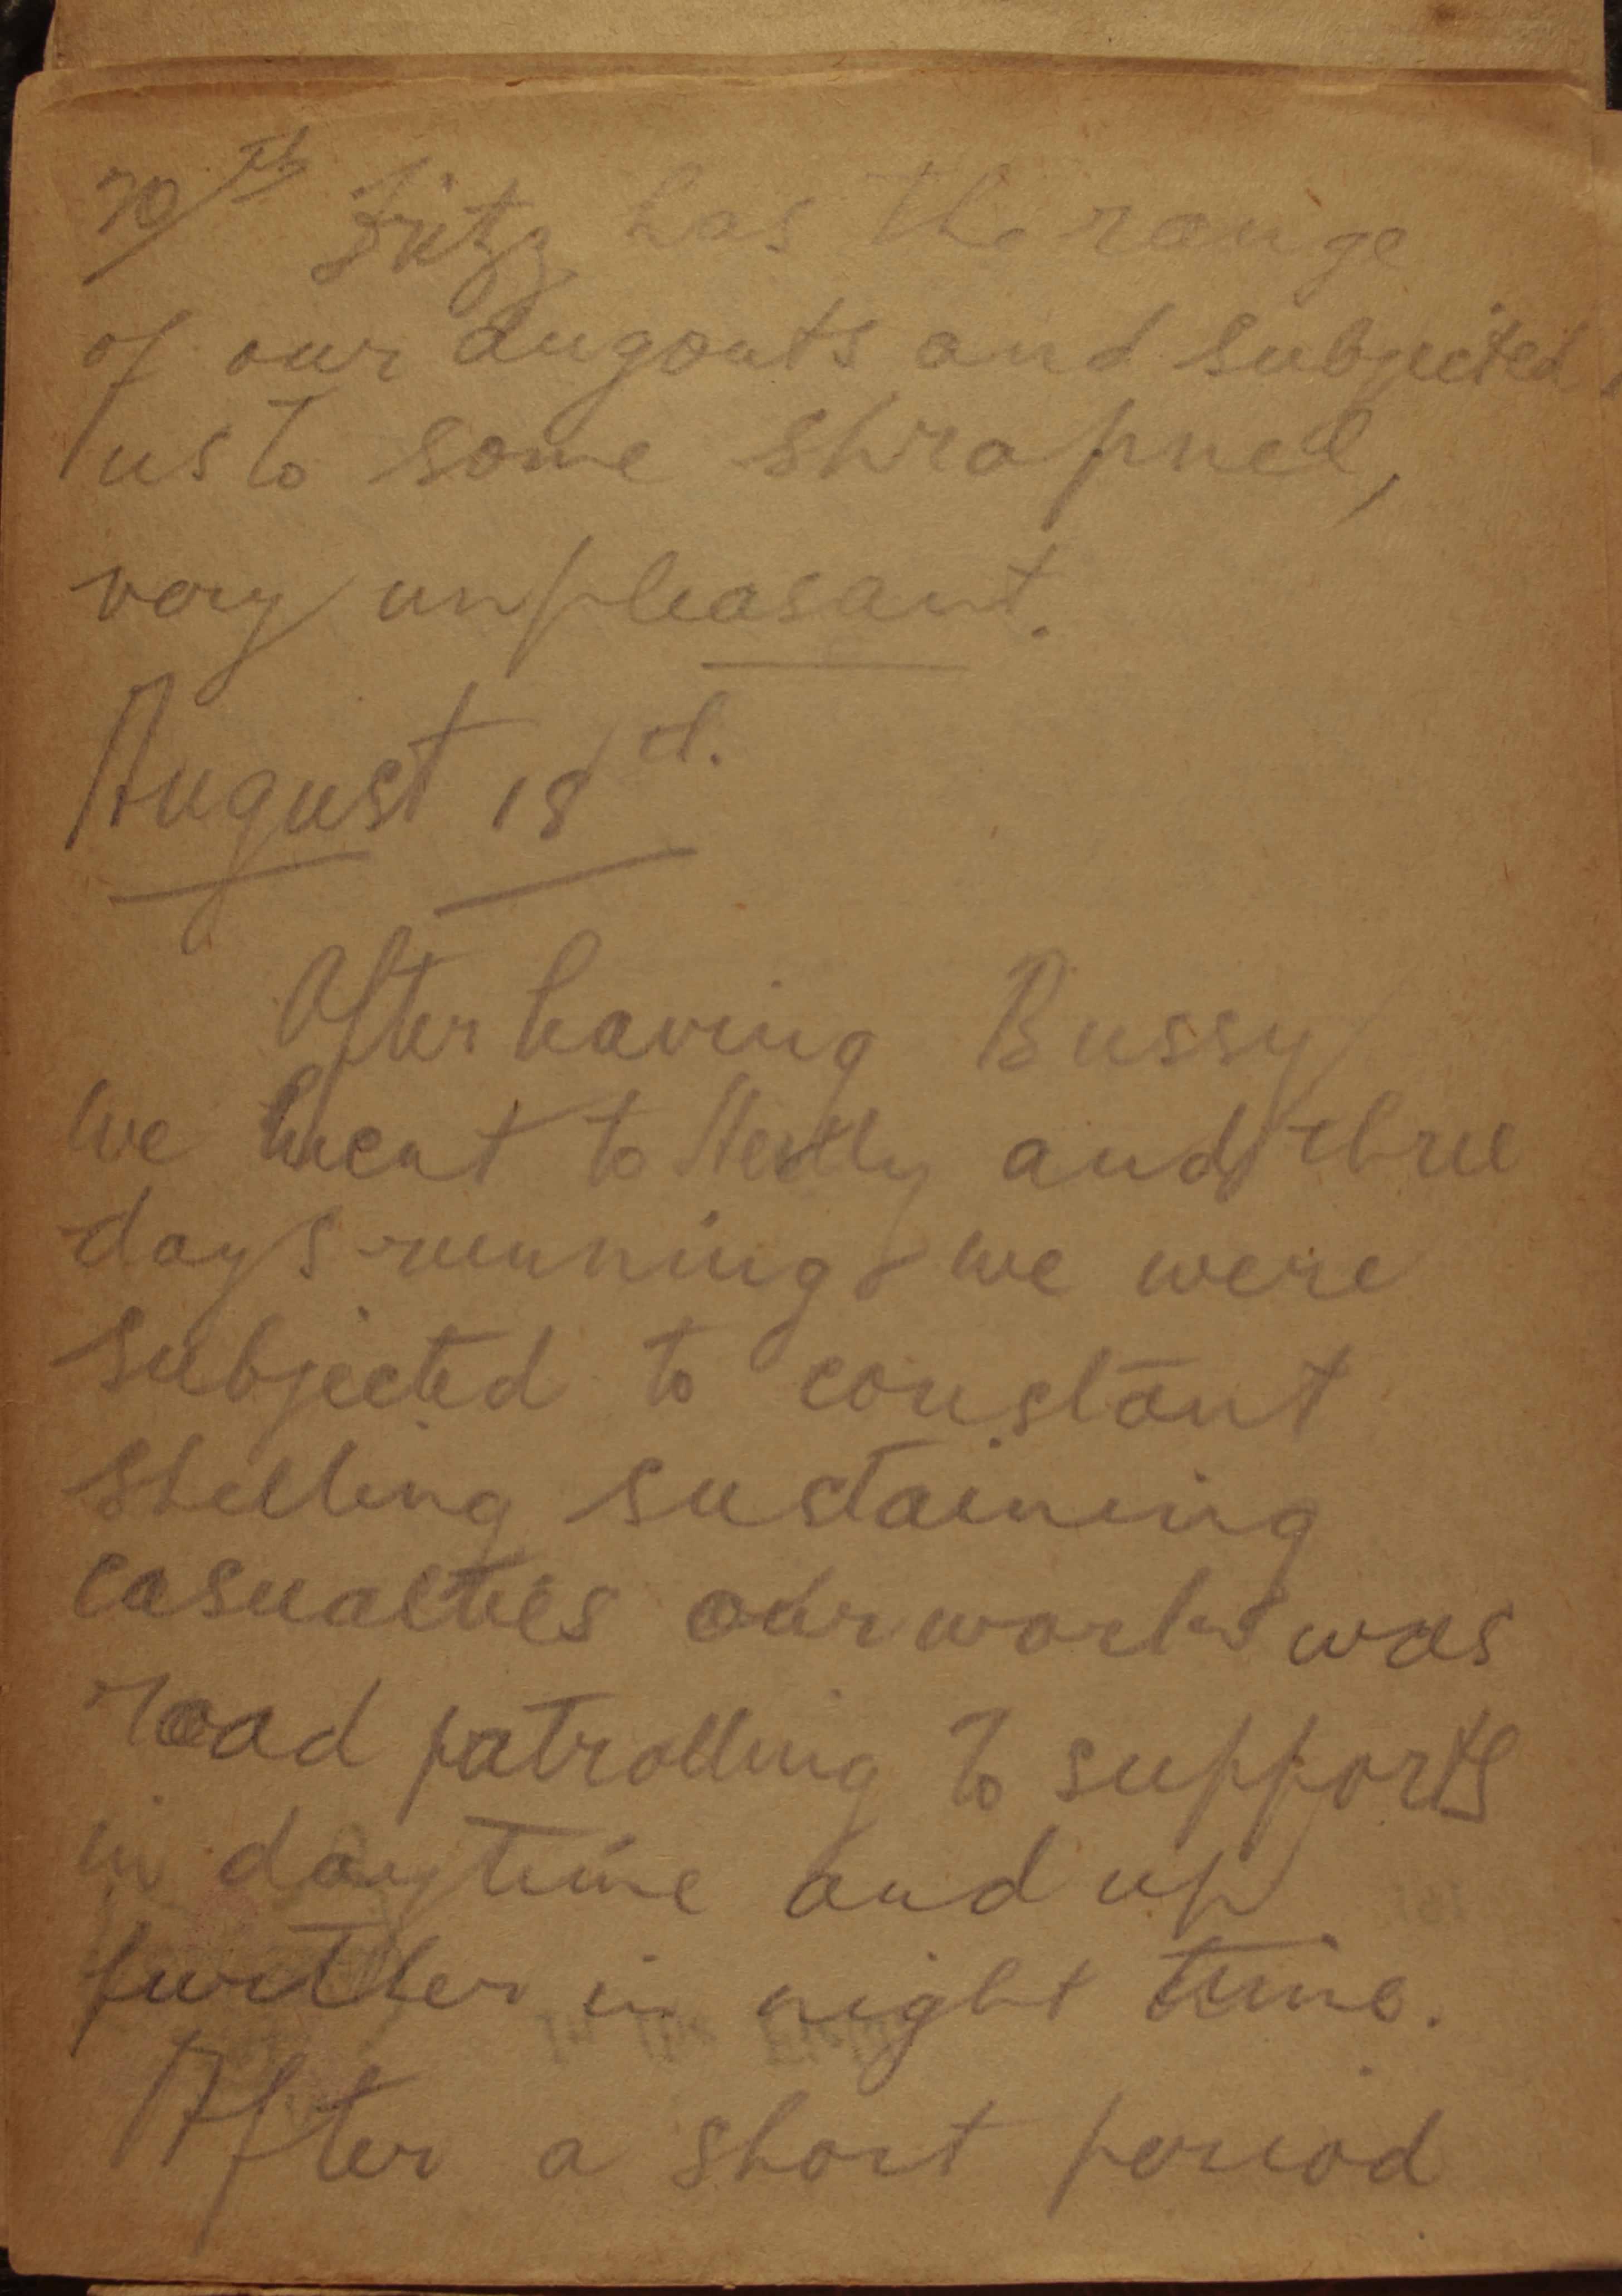 of our dugouts and subjected
us to some shrapnel,
very unpleasant.
August 18
After leaving Bussy
we went to and three
days running we were
subjected to constant
shelling sustaining
casualties our work was
road patrolling to supports
in daytime and up
further in night time.
After a short period